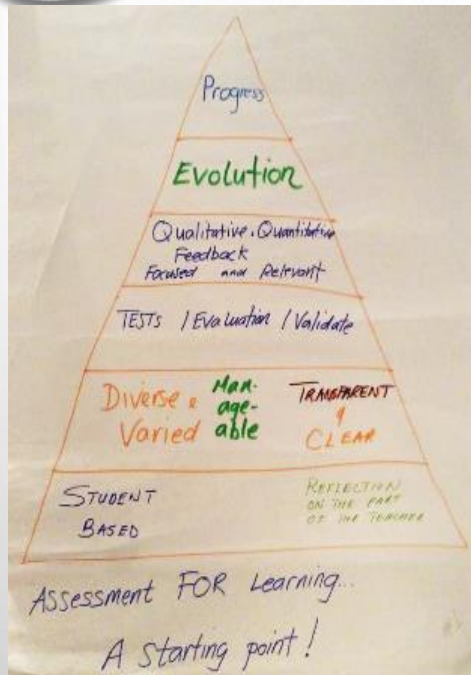 Progress
Evolution
Qualitative. Quantitative
Feedback
Focused and Relevant
TESTs / Evaluation / Validate
Diverse &
Varied
Man-
age-
able
TRANSPARENT
&
CLEAR
STUDENT
BASED
REFLECTION
ON THE PART
OF THE TEACHER
Assessment FOR Learning...
A starting point!